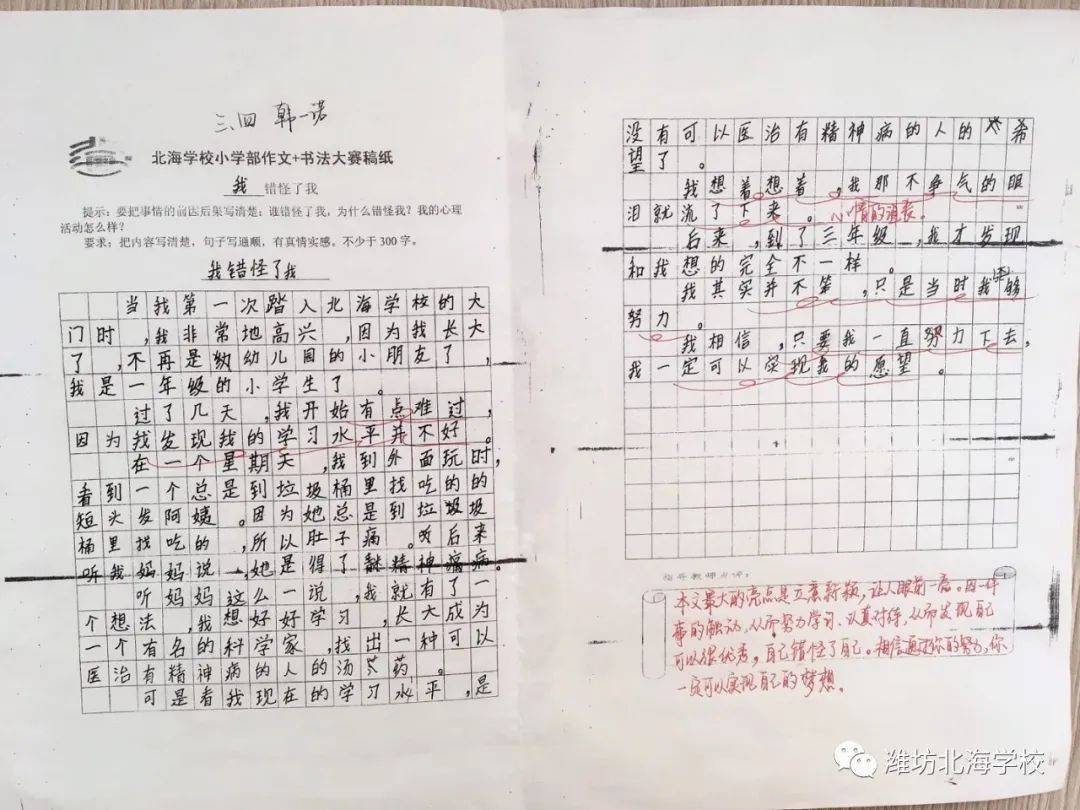 三、四 韩一诺
北海学校小学部作文+书法大赛稿纸
我 错怪了我
提示：要把事情的前因后果写清楚：谁错怪了我，为什么错怪我？我的心理
活动怎么样？
要求：把内容写清楚，句子写通顺，有真情实感。不少于300字。
我错怪了我
当我第一次踏入北海学校的大
门时，我非常地高兴，因为我长大
了，不再是幼儿园的小朋友了，
我是一年级的小学生了。
过了几天，我开始有点难过，
因为我发现我的学习水平并不好。
在一个星期天，我到外面玩时，
看到一个总是到垃圾桶里找吃的的
短头发阿姨。因为她总是到垃圾
桶里找吃的，所以肚子痛。后来
听我妈妈说，她是得了精神病
听妈妈这么一说，我就有了一
个想法，我想好好学习，长大成为
一个有名的科学家，找出一种可以
医治有精神病的人的汤药。
可是看我现在的学习水平，是
没有可以医治有精神病的人的希
望了。
我想着想着，我那不争气的眼
泪就流了下来。心情的表
后来，到了三年级，我才发现
和我想的完全不一样。
我其实并不笨，只是当时我够
努力。
我相信，只要我一直努力下去，
我一定可以实现我的愿望。
指导教师点评：
本文最大的亮点是立意新颖，让人眼前一亮。因一件
事的触动，从而努力学习、认真对待，从而发现自己
可以很优秀，自己错怪了自己。相信通过你的努力，你
一定可以实现自己的梦想。
潍坊北海学校